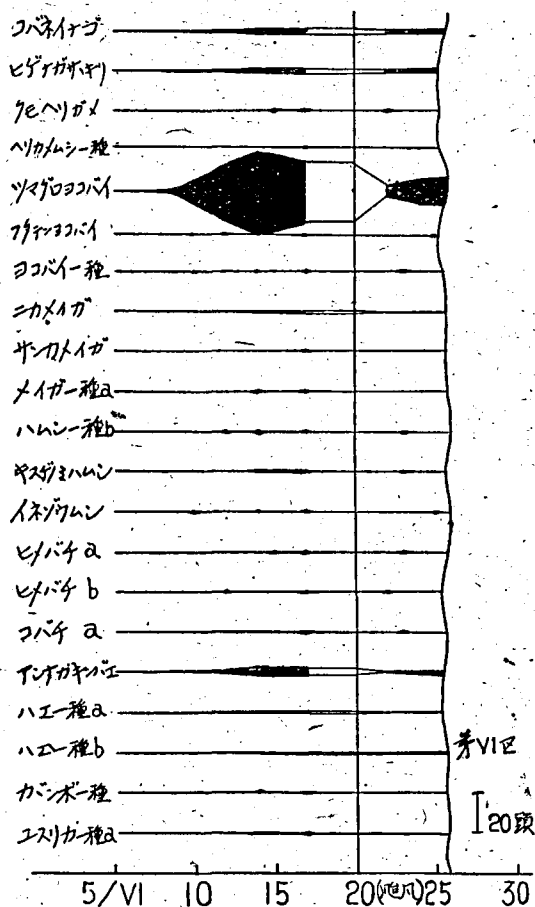 コバネイナゴ
ヒゲナガササキリ
クモヘリガメ
ヘリカメムシ一種
ツマグロヨコバイ
フタテンヨコバイ
ヨコバイ一種
ニカメイガ
サンカメイガ
メイガ一種a
ハムシ一種b
キスヂノミハムシ
イネゾウムシ
ヒメバチ a
ヒメバチ b
コバチ a
アシナガキンバエ
ハエ一種a
ハエ一種b
ガガンボ一種
ユスリカ一種a
第VI区
20頭
5/VI 10 15 20(颱风)25 30